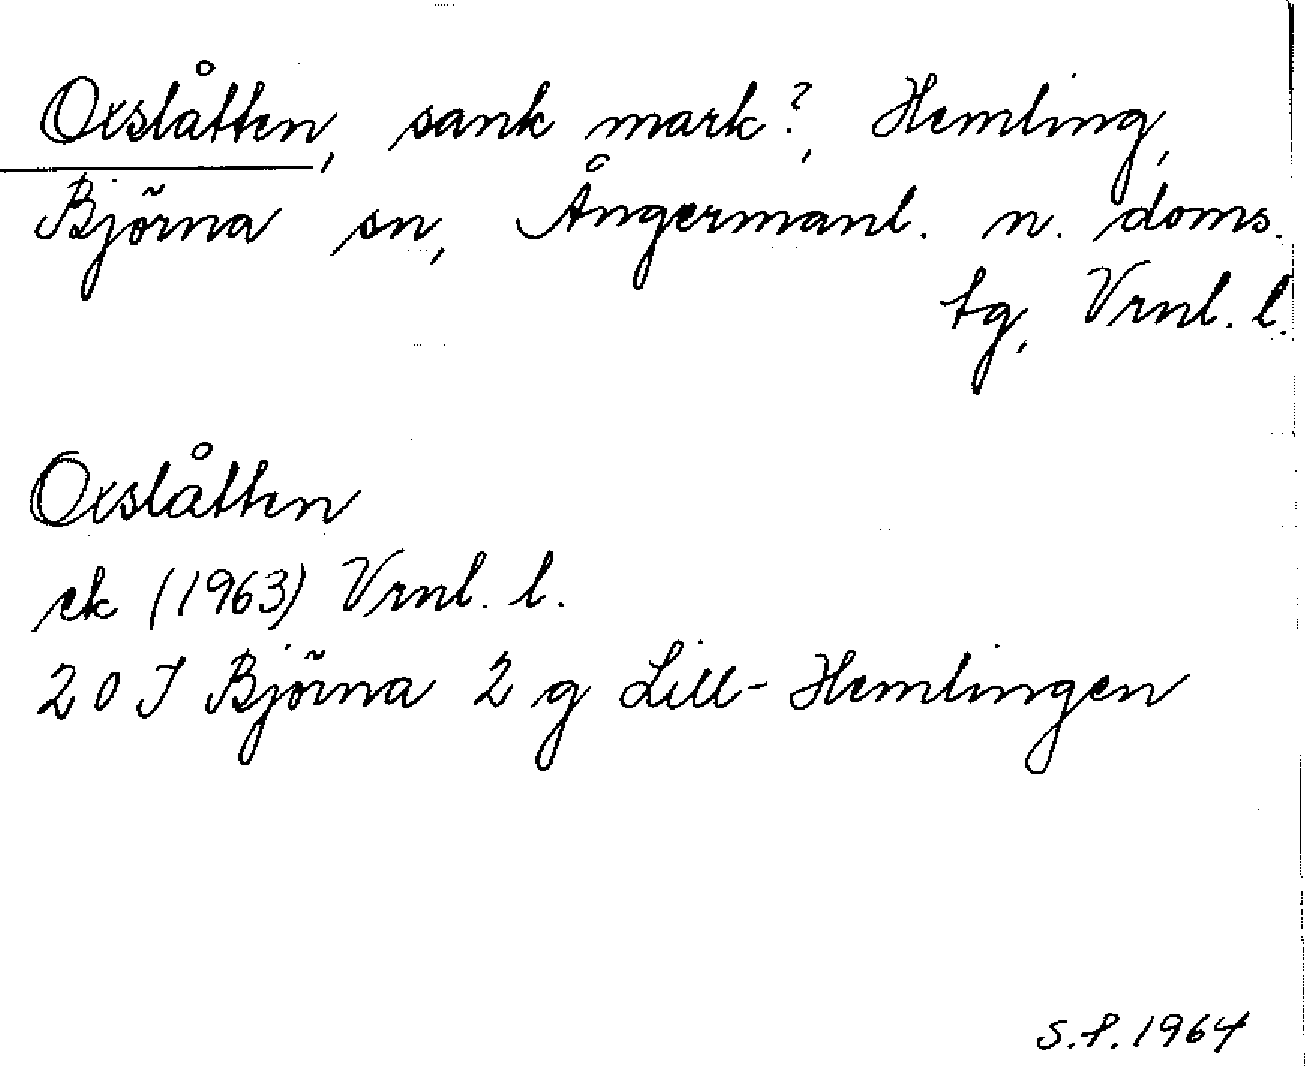 Oxslåtten, sank mark?, Hemling,
Björna sn, Ångermanl. n. doms.
tg, Vrnl. l.
Oxslåtten
ek (1963) Vrnl. l.
20 J Björna 2 g Lill-Hemlingen
S.P. 1964